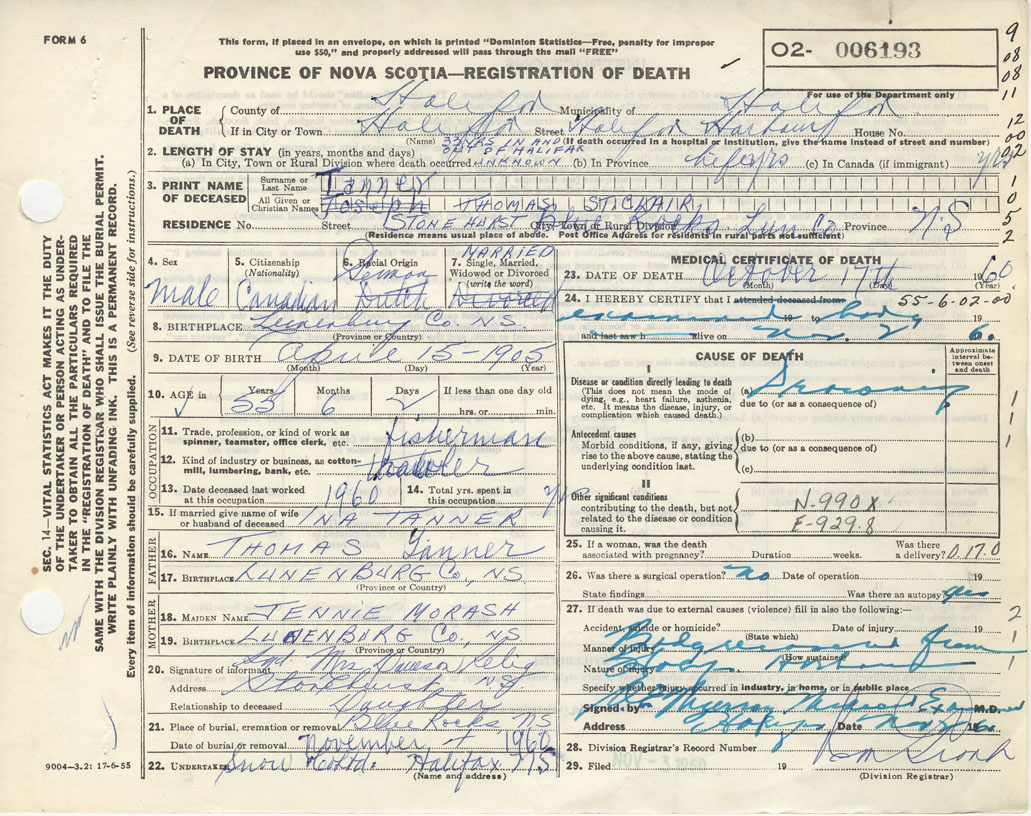 FORM 6
This form, if placed in an envelope, on which is printed "Dominion Statistics—Free, penalty for improper
use $50," and properly addressed will pass through the mail "FREE"
PROVINCE OF NOVA SCOTIA—REGISTRATION OF DEATH
O2- 006193
For use of the Department only
9
08
08
11
12
00
02
1
0
5
2
SEC. 14—VITAL STATISTICS ACT MAKES IT THE DUTY
OF THE UNDERTAKER OR PERSON ACTING AS UNDER-
TAKER TO OBTAIN ALL THE PARTICULARS REQUIRED
IN THE "REGISTRATION OF DEATH" AND TO FILE THE
SAME WITH THE DIVISION REGISTRAR WHO SHALL ISSUE THE BURIAL PERMIT.
WRITE PLAINLY WITH UNFADING INK. THIS IS A PERMANENT RECORD.
Every item of information should be carefully supplied. (See reverse side for instructions.)
1. PLACE OF DEATH County of Halifax Municipality of Halifax
If in City or Town Halifax Street Halifax Harbour House No.
(Name) (If death occurred in a hospital or institution, give the name instead of street and number)
2. LENGTH OF STAY (in years, months and days) IN AND OUT OF HALIFAX
(a) In City, Town or Rural Division where death occurred UNKNOWN (b) In Province yrs (c) In Canada (if immigrant) yrs
3. PRINT NAME OF DECEASED Surname or Last Name Tanner
All Given or Christian Names Joseph THOMAS ST. CLAIR
RESIDENCE No. Street STONEHURST City, Town or Rural Division Blue Rocks Lun Co Province N S
(Residence means usual place of abode. Post Office Address for residents in rural parts not sufficient)
4. Sex male
5. Citizenship (Nationality) Canadian
6. Racial Origin German Dutch
7. Single, Married, Widowed or Divorced (write the word) MARRIED Divorced
8. BIRTHPLACE Lunenburg Co. N.S.
(Province or Country)
9. DATE OF BIRTH April 15 - 1905
(Month) (Day) (Year)
10. AGE in Years 55 Months 6 Days 2 If less than one day old hrs. or min.
OCCUPATION
11. Trade, profession, or kind of work as spinner, teamster, office clerk, etc. fisherman
12. Kind of industry or business, as cotton-mill, lumbering, bank, etc.
13. Date deceased last worked at this occupation 1960 14. Total yrs. spent in this occupation yrs
15. If married give name of wife or husband of deceased INA TANNER
FATHER
16. NAME THOMAS Tanner
17. BIRTHPLACE LUNENBURG Co., NS
(Province or Country)
MOTHER
18. MAIDEN NAME JENNIE MORASH
19. BIRTHPLACE LUNENBURG Co., NS
(Province or Country)
20. Signature of informant Sgd. Mrs. Dawson
Address Stonehurst NS.
Relationship to deceased Daughter
21. Place of burial, cremation or removal Blue Rocks NS
Date of burial or removal November 4 1960
22. UNDERTAKER Snow Co Ltd. Halifax NS
(Name and address)
9004-3.2: 17-6-55
MEDICAL CERTIFICATE OF DEATH
23. DATE OF DEATH October 17th 1960
(Month) (Day) (Year)
24. I HEREBY CERTIFY that I attended deceased from 55-6-02-00
examined body 19 to 19
and last saw h alive on 6.
CAUSE OF DEATH
Approximate interval between onset and death
I
Disease or condition directly leading to death
(This does not mean the mode of dying, e.g., heart failure, asthenia, etc. It means the disease, injury, or complication which caused death.)
(a) Drowning
due to (or as a consequence of)
Antecedent causes
Morbid conditions, if any, giving rise to the above cause, stating the underlying condition last.
(b)
due to (or as a consequence of)
(c)
II
Other significant conditions
contributing to the death, but not related to the disease or condition causing it.
N-990X
F-929.8
1
1
1
25. If a woman, was the death associated with pregnancy? Duration weeks. Was there a delivery? 0 17.0
26. Was there a surgical operation? no Date of operation 19
State findings Was there an autopsy? yes
27. If death was due to external causes (violence) fill in also the following:—
Accident, suicide or homicide? Date of injury 19
(State which)
Manner of injury from
(How sustained)
Nature of injury Body
Specify whether injury occurred in industry, in home, or in public place
Signed by Murray Medical M.D.
Address Date Nov 2 1960
2
1
1
28. Division Registrar's Record Number
29. Filed NOV - 3 1960 19
(Division Registrar)